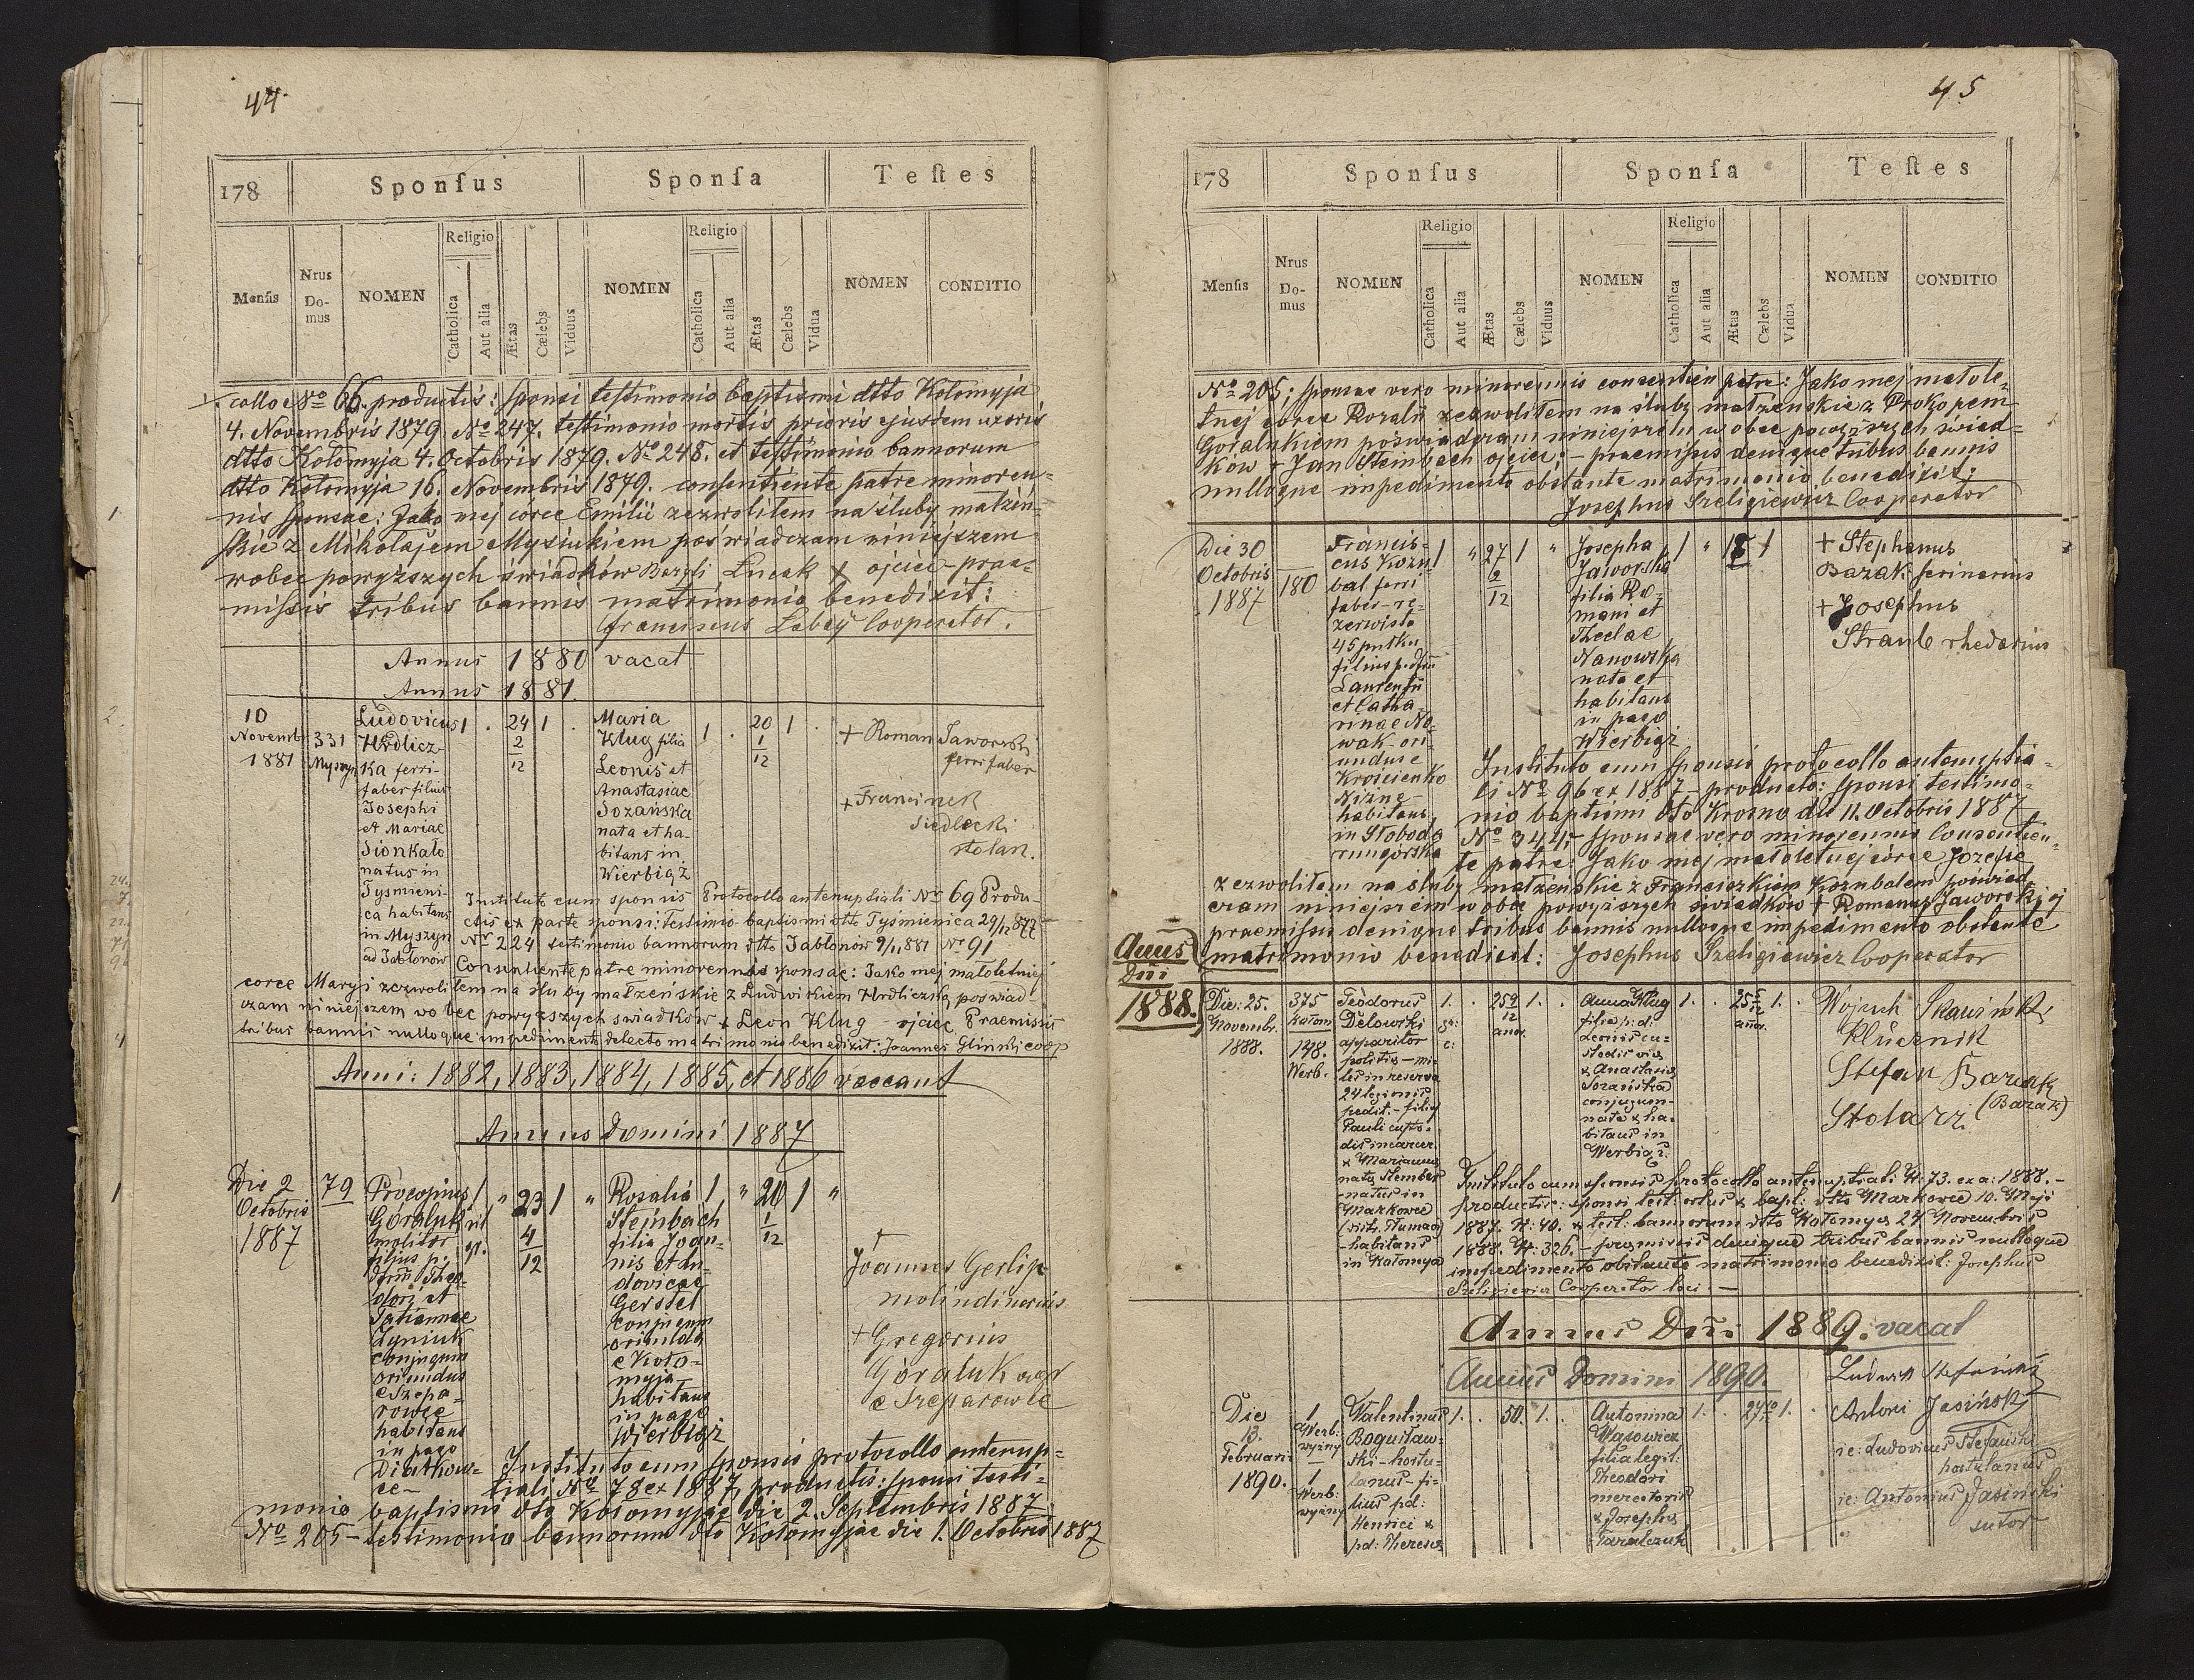 44.
178 Sponſus Sponſa Teſtes
Menſis Nrus Do-mus NOMEN Religio Catholica Aut alia Ætas Cælebs Viduus NOMEN Religio Catholica Aut alia Ætas Cælebs Vidua NOMEN CONDITIO
collo No 66. productis: Sponsi testimonio baptismi dtto Kołomyja
4. Novembris 1879 No 247. testimonio mortis prioris ejusdem uxoris
dtto Kołomyja 4. Octobris 1879. No 248. et testimonio bannorum
dtto Kołomyja 16. Novembris 1879. consentiente patre minoren-
nis sponsae: Jako mej corce Emilii zezwolilem na śluby małżeń-
skie z Mikołajem Mysiukiem poświadczam niniejszem
wobec powyższych świadków Bazyli Lucak + ojciec - prae-
missis tribus bannis matrimonio benedixit:
Franciscus Łabay Cooperator.
Annus 1880 vacat
Annus 1881.
10
Novemb.
1881
331
Myszyn
Ludovicus
Hrdlicz-
ka ferri-
faber filius
Josephi
et Mariae
Sionkało
natus in
Tysmieni-
ca habitans
in Myszyn
ad Jabłonów
1 . 24 2/12 1 .
Maria
Klug filia
Leonis et
Anastasiae
Sozańska
nata et ha-
bitans in
Wierbiąż
1 . 20 1/12 1 .
+ Roman Jaworski
ferrifaber
+ Franciszek
Siedlecki
stolarz.
Instituto cum sponsis Protocollo antenuptiali No 69 Produ-
ctis ex parte sponsi: Testimio baptismi dtto Tyśmienica 29/11 877
No 224 testimonio bannorum dtto Jabłonów 9/11 881 No 91
Consentiente patre minorennis sponsae: Jako mej małoletniej
corce Maryi zezwolilem na śluby małżeńskie z Ludwikiem Hrdliczką poświad-
czam niniejszem wobec powyższych świadków + Leon Klug - ojciec Praemissis
tribus bannis nulloque impedimento detecto matrimonio benedixit: Joannes Gliński coop
Anni: 1882, 1883, 1884, 1885, et 1886 vaccant
Annus Domini 1887
Die 2
Octobris
1887
79
Procopius
Góraluk
molitor
filius p.
dfui Theo-
dori et
Tatiannae
Zyniuk
conjugum
oriundus
e Szepa-
rowce
habitans
in pago
Diatkow-
ce -
1 rit. gr. " 23 4/12 1 "
Rosalia
Steinbach
filia Joan-
nis et Lu-
dovicae
Gerstel
conjugum
oriunda
e Koło-
myja-
habitans
in pago
Wierbiąż
1 " 20 1/12 1 "
+
Joannes Gerlip
molindinarius
+ Gregorius
Góraluk agr
e Szeparowce
Instituto cum sponsis protocollo antenup-
tiali No 78 ex 1887, productis: sponsi testi-
monio baptismi dto Kołomyjae die 2. Septembris 1887
No 205 - testimonio bannorum dto Kołomyjae die 1. Octobris 1887
45
178 Sponſus Sponſa Teſtes
Menſis Nrus Do-mus NOMEN Religio Catholica Aut alia Ætas Cælebs Viduus NOMEN Religio Catholica Aut alia Ætas Cælebs Vidua NOMEN CONDITIO
No 205; sponsae vero minorennis consentien patre: Jako mej małole-
tnej córce Rozalii zezwolilem na śluby małżeńskie z Prokopem
Goralukiem poświadczam niniejszem wobec powyższych świad-
ków + Jan Steinbach ojciec; - praemissis denique tribus bannis
nulloque impedimento obstante matrimonio benedixit:
Josephus Szeligiewicz Cooperator
Die 30
Octobris
1887
180
Francis-
cus Kozu-
bal ferri
faber - re-
zerwista
45 pułku
filius p. dfui
Laurentii
et Catha-
rinae No-
wak - ori-
undus e
Krościenko
Niżne -
habitans
in Słoboda
rungórska
1 " 27 2/12 1 "
Josepha
Jaworska
filia Ro-
mani et
Theclae
Nanowska
nata et
habitans
in pago
Wierbiąż
1 " 18 1
+ Stephanus
Bazak scriniarius
+ Josephus
Straub rhedarius
Instituto cum sponsis protocollo antenuptia-
li No 96 ex 1887 - producto: sponsi testimo-
nio baptismi dto Krosno du 11. Octobris 1887
No 344; - sponsae vero minorennis consentien-
te patre: Jako mej małoletniej córce Józefie
zezwolilem na śluby małżeńskie z Franciszkiem Kozubalem poświad-
czam niniejszem wobec powyższych świadków + Romanus Jaworski oj
praemissis denique tribus bannis nulloque impedimento obstante
matrimonio benedixit: Josephus Szeligiewicz Cooperator
Annus
Dni
1888.
Die: 25.
Novembr.
1888.
375
Kołom
148.
Werb.
Teodorus
Delowski
apparitor
politic - mi-
les in reserva
24 legionis
pedit. - filius
Pauli custo-
dis incarcer.
& Mariannae
nata Stember
- natus in
Markowce
(distr. Tłumacz)
- habitans
in Kołomyja
1. gr: c: . 25 9/12 anor. 1. .
Anna Klug
filia p: d:
Leonis cu-
stodis viae
& Anastasiae
Sozańska
conjugum-
nata & ha-
bitans in
Werbiąż.
1. . 25 5/12 anor. 1. .
Wojciech Skawiński
Klucznik
Stefan Barzak
(Bazak)
Stolarz
Instituto cum sponsis protocollo antenuptiali N: 73. ex a: 1888. -
productis: sponsi test. ortus & bapt: dtto Markowce 10. Maji
1887. N: 40. & test: bannorum dtto Kołomyja 24. Novembris
1888. N: 326. - praemissis denique tribus bannis nulloque
impedimento obstante matrimonio benedixit: Josephus
Szeligiewicz Cooperator loci. -
Annus Dni 1889. vacat
Annus Domini 1890.
Die
13.
Februarii
1890.
1
Werb:
wyżny
-
1
Werb:
wyżny
Valentinus
Bogusław-
ski - hortu-
lanus - fi-
lius pd:
Henrici &
pd: Theresae
1. . 50. 1. .
Antonina
Wąsowicz
filia legit:
Theodori
mercatoris
& Josephae
Taralczuk
1. . 24 1. .
Ludwik Stefański
Antoni Jasiński
ie: Ludovicus Stefański
hortulanus
ie: Antonius Jasiński
sutor